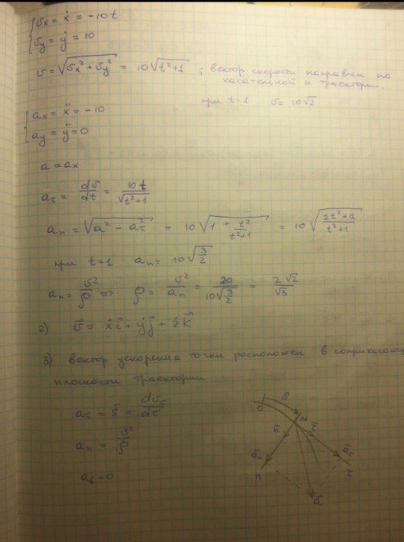 { υx = ẋ = -10t
υy = ẏ = 10
υ = √(υx² + υy²) = 10√(t²+1) ; вектор скорости направлен по
касательной к траектории.
при t=1 υ = 10√2
{ ax = ẍ = -10
ay = ÿ = 0
a = ax
aτ = dυ/dt = 10t/√(t²+1)
an = √(a² - aτ²) = 10√(1 + t²/(t²+1)) = 10√((2t²+1)/(t²+1))
при t=1 an = 10√(3/2)
an = υ²/ρ => ρ = υ²/an = 20/(10√(3/2)) = 2√2/√3
2) υ⃗ = ẋi⃗ + ẏj⃗ + żk⃗
3) вектор ускорения точки расположен в соприкасающ
плоскости траектории
aτ = dυ/dt
an = υ²/ρ
ab = 0